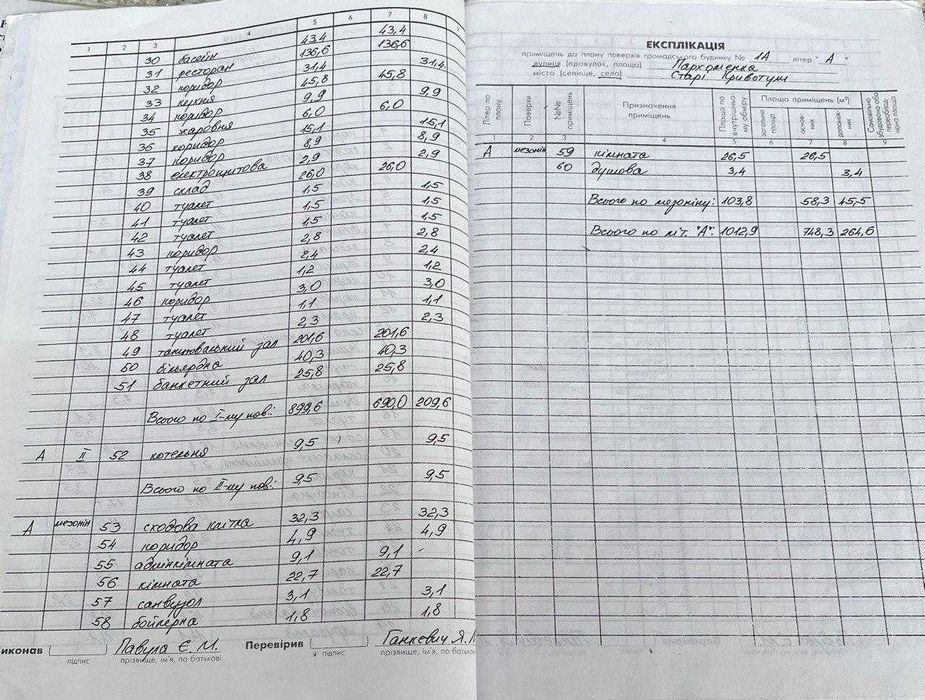 1 2 3 4 5 6 7 8
30 басейн 43,4 43,4
31 ресторан 136,6 136,6
32 коридор 31,4 31,4
33 кухня 45,8 45,8
34 коридор 9,9 9,9
35 жаровня 6,0 6,0
36 коридор 15,1 15,1
37 коридор 8,9 8,9
38 електрощитова 2,9 2,9
39 склад 26,0 26,0
40 туалет 1,5 1,5
41 туалет 1,5 1,5
42 туалет 1,5 1,5
43 коридор 2,8 2,8
44 туалет 2,4 2,4
45 туалет 1,2 1,2
46 коридор 3,0 3,0
47 туалет 1,1 1,1
48 туалет 2,3 2,3
49 танцювальний зал 201,6 201,6
50 більярдна 40,3 40,3
51 банкетний зал 25,8 25,8
Всього по І-му пов: 899,6 690,0 209,6
А ІІ 52 котельня 9,5 9,5
Всього по ІІ-му пов: 9,5 9,5
А мезонін 53 сходова клітка 32,3 32,3
54 коридор 4,9 4,9
55 адмінкімната 9,1 9,1
56 кімната 22,7 22,7
57 санвузол 3,1 3,1
58 бойлерна 1,8 1,8
Виконав Павула Є. М. Перевірив Ганкевич Я.
підпис прізвище, ім'я, по батькові підпис прізвище, ім'я, по батькові
ЕКСПЛІКАЦІЯ
приміщень до плану поверхів громадського будинку № 1А літер "А"
вулиця (провулок, площа) Пархоменка
місто (селище, село) Старі Кривотули
Літера по плану
Поверхи
№№ приміщень
Призначення приміщень
Площа по внутрішньому обміру
Площа приміщень (м²)
основних
допоміжних
2 3 4 5 6 7 8 9
А мезонін 59 кімната 26,5 26,5
60 душова 3,4 3,4
Всього по мезоніну: 103,8 58,3 45,5
Всього по літ. "А": 1012,9 748,3 264,6